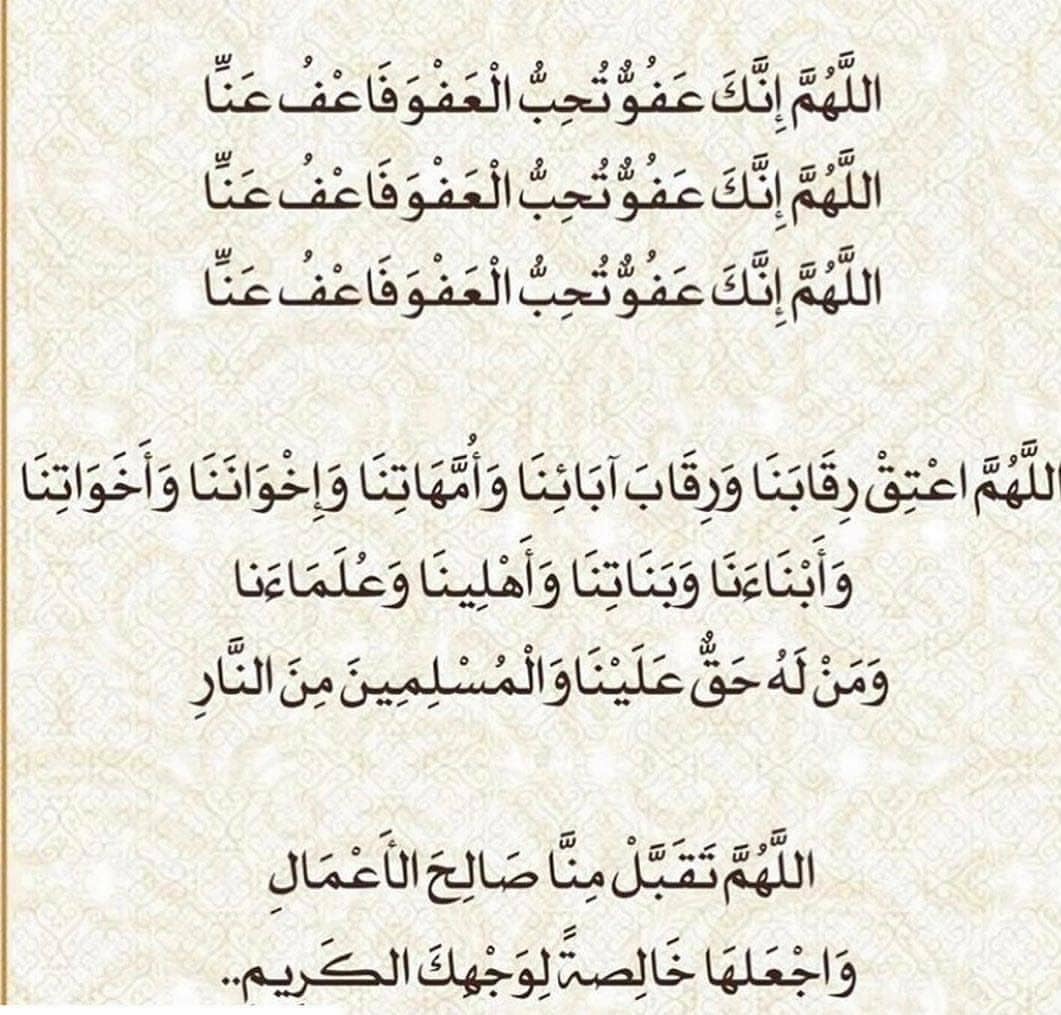 اللَّهُمَّ إِنَّكَ عَفُوٌّ تُحِبُّ الْعَفْوَ فَاعْفُ عَنَّا
اللَّهُمَّ إِنَّكَ عَفُوٌّ تُحِبُّ الْعَفْوَ فَاعْفُ عَنَّا
اللَّهُمَّ إِنَّكَ عَفُوٌّ تُحِبُّ الْعَفْوَ فَاعْفُ عَنَّا
اللَّهُمَّ اعْتِقْ رِقَابَنَا وَرِقَابَ آبَائِنَا وَأُمَّهَاتِنَا وَإِخْوَانَنَا وَأَخَوَاتِنَا
وَأَبْنَاءَنَا وَبَنَاتِنَا وَأَهْلِينَا وَعُلَمَاءَنا
وَمَنْ لَهُ حَقٌّ عَلَيْنَا وَالْمُسْلِمِينَ مِنَ النَّارِ
اللَّهُمَّ تَقَبَّلْ مِنَّا صَالِحَ الأَعْمَالِ
وَاجْعَلهَا خَالِصةً لِوَجْهِكَ الكَرِيم..